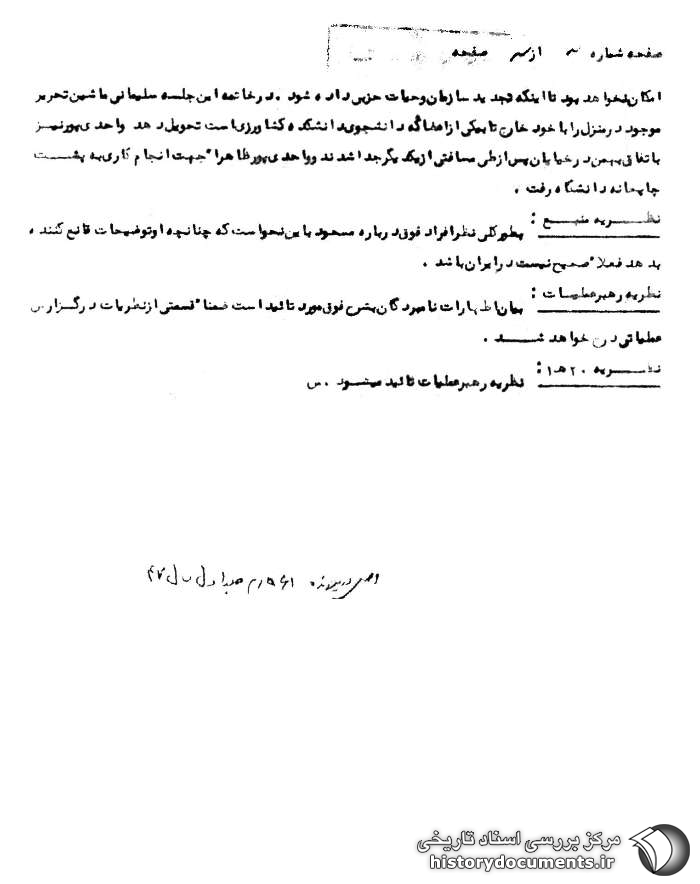 صفحه شماره ۳ از ۳ صفحه
امکان نخواهد بود تا اینکه تجدید سازمان و حیات حزبی داده شود . در خاتمه این جلسه سلیمانی ماشین تحریر
موجود در منزل را با خود خارج تا بیکی از اعضا که دانشجوی دانشکده کشاورزی است تحویل دهد واحدی پور نیز
باتفاق بهمن در خیابان پس از طی مسافتی از یکدیگر جدا شدند و واحدی پور ظاهرا" جهت انجام کاری به پشت
چاپخانه دانشگاه رفت .
نظریه منبع : بطور کلی نظر افراد فوق درباره مسعود باین نحو است که چنانچه او توضیحات قانع کننده
بدهد فعلا" صحیح نیست در ایران باشد .
نظریه رهبر عملیات : بیان اظهارات نامبردگان بشرح فوق مورد تائید است ضمنا" قسمتی از نظریات در گزارش
عملیاتی درج خواهد شد .
نظریه ۲۰ هـ ۱ : نظریه رهبر عملیات تائید میشود . س
اصل در پرونده جلد اول سال ۴۷
مرکز بررسی اسناد تاریخی
historydocuments.ir